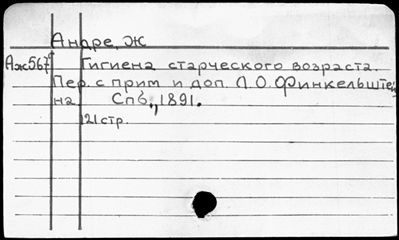 Андре, Ж
Аж567 Гигиена старческого возраста.
Пер. с прим и доп. Л.О. Финкельштей
на Спб., 1891.
121 стр.